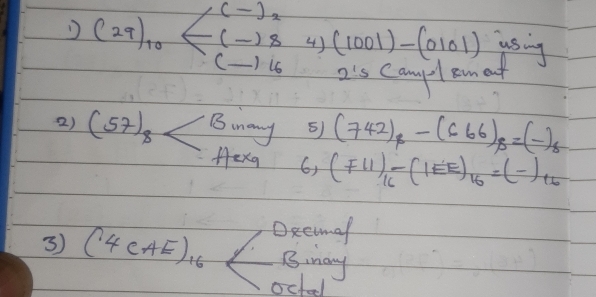 1) (29)10 (—)2
(—)8
(—)16
2) (57)8 Binary
Hexa
3) (4CAE)16 Decimal
Binary
Octal
4) (1001) – (0101) using
2's Complement
5) (742)8 – (666)8 = (—)8
6) (F11)16 – (1EE)16 = (—)16